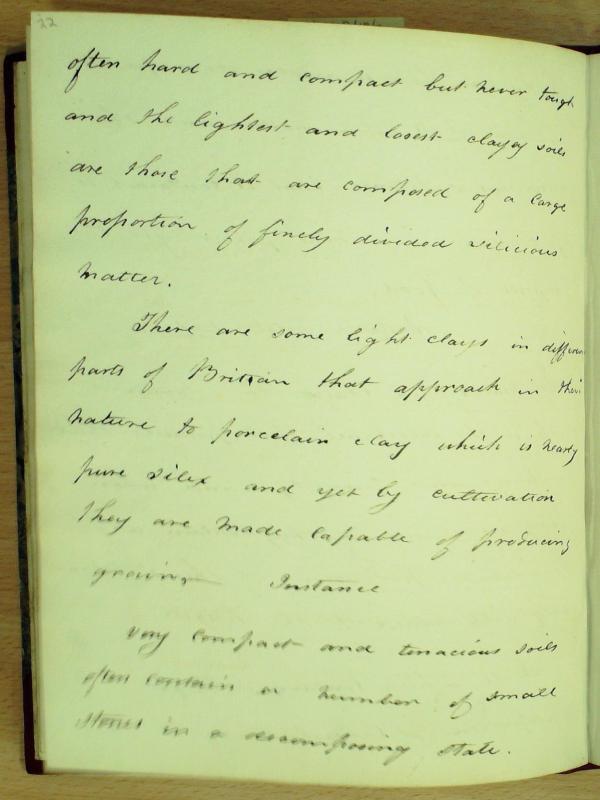 22
often hard and compact but never tough
and the lightest and losest clayey soils
are those that are composed of a large
proportion of finely divided silicious
matter.
There are some light clays in different
parts of Britian that approach in their
nature to porcelain clay which is nearly
pure silex and yet by cultivation
they are made capable of producing
Instance
very compact and tenacious soils
often contain a number of small
stones in a decomposing state.